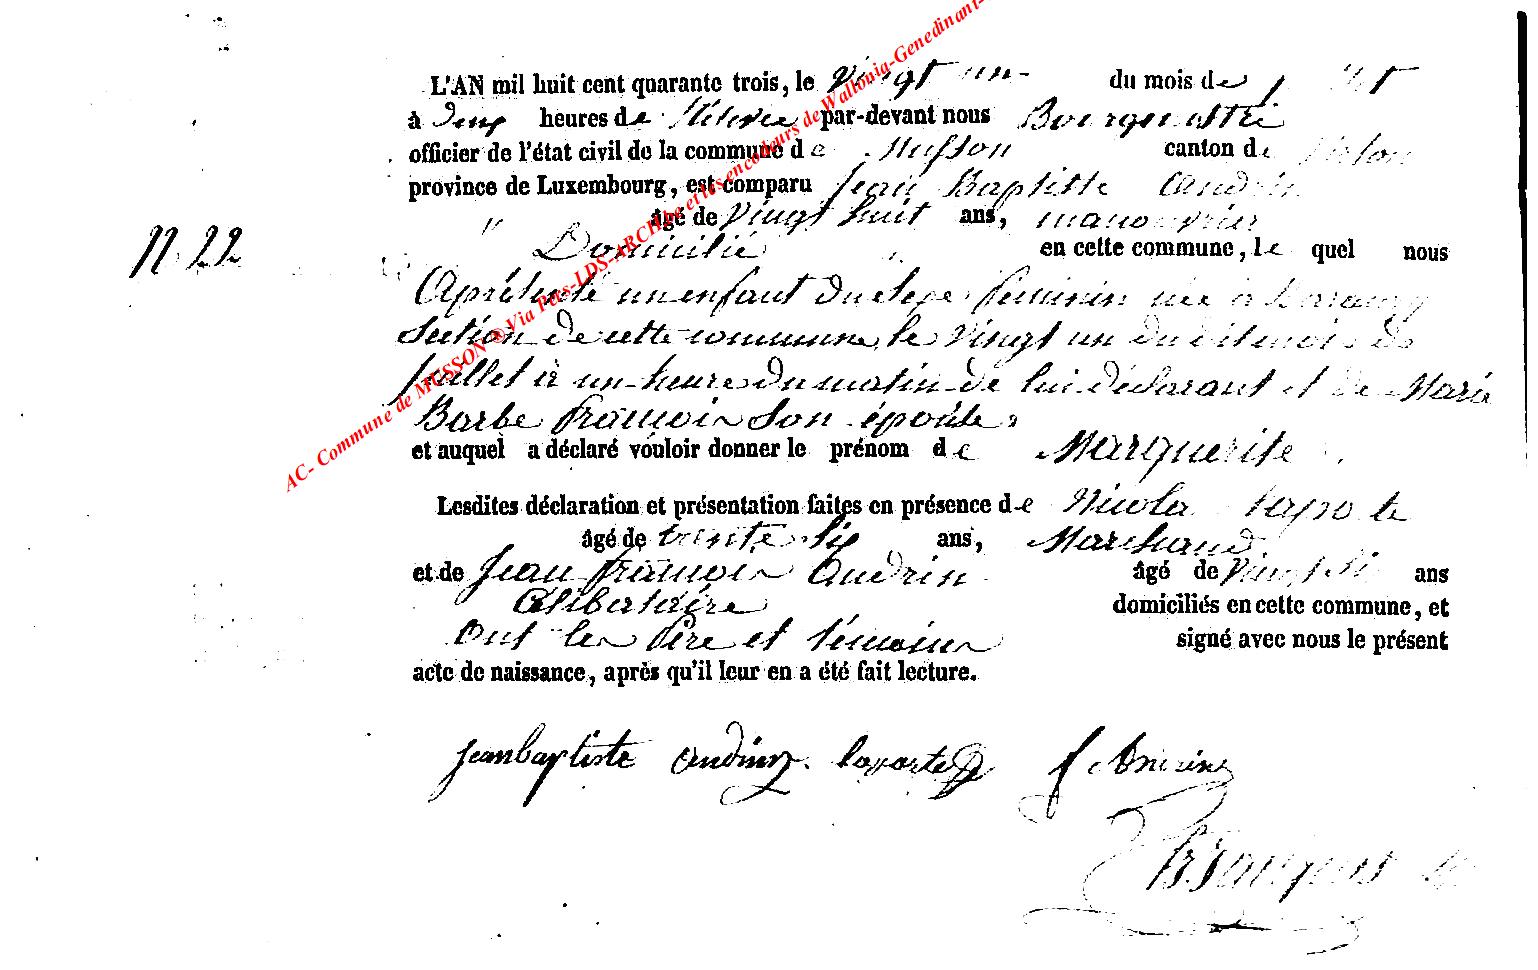 L'AN mil huit cent quarante trois, le vingt un du mois de
à deux heures de relevée par-devant nous Bourguemestre
officier de l'état civil de la commune de Musson canton de Virton
province de Luxembourg, est comparu Jean Baptiste Andrin
âgé de vingt huit ans, manouvrier
N. 22
Domicilié en cette commune, le quel nous
A présenté un enfant du sexe féminin née à
section de cette commune, le vingt un dudit mois de
juillet à un heure du matin de lui déclarant et de Marie
Barbe françois son épouse,
et auquel a déclaré vouloir donner le prénom de Marguerite
Lesdites déclaration et présentation faites en présence de Nicolas Laporte
âgé de trente six ans, Marchand
et de Jean françois Andrin âgé de vingt six ans
Célibataire domiciliés en cette commune, et
Ont les Père et témoins signé avec nous le présent
acte de naissance, après qu'il leur en a été fait lecture.
jean baptiste andrin laporte f Andrin
AC- Commune de MUSSON ® Via Pets-LDS-ARCH be et les encodeurs de Wallonia-Genedinant-